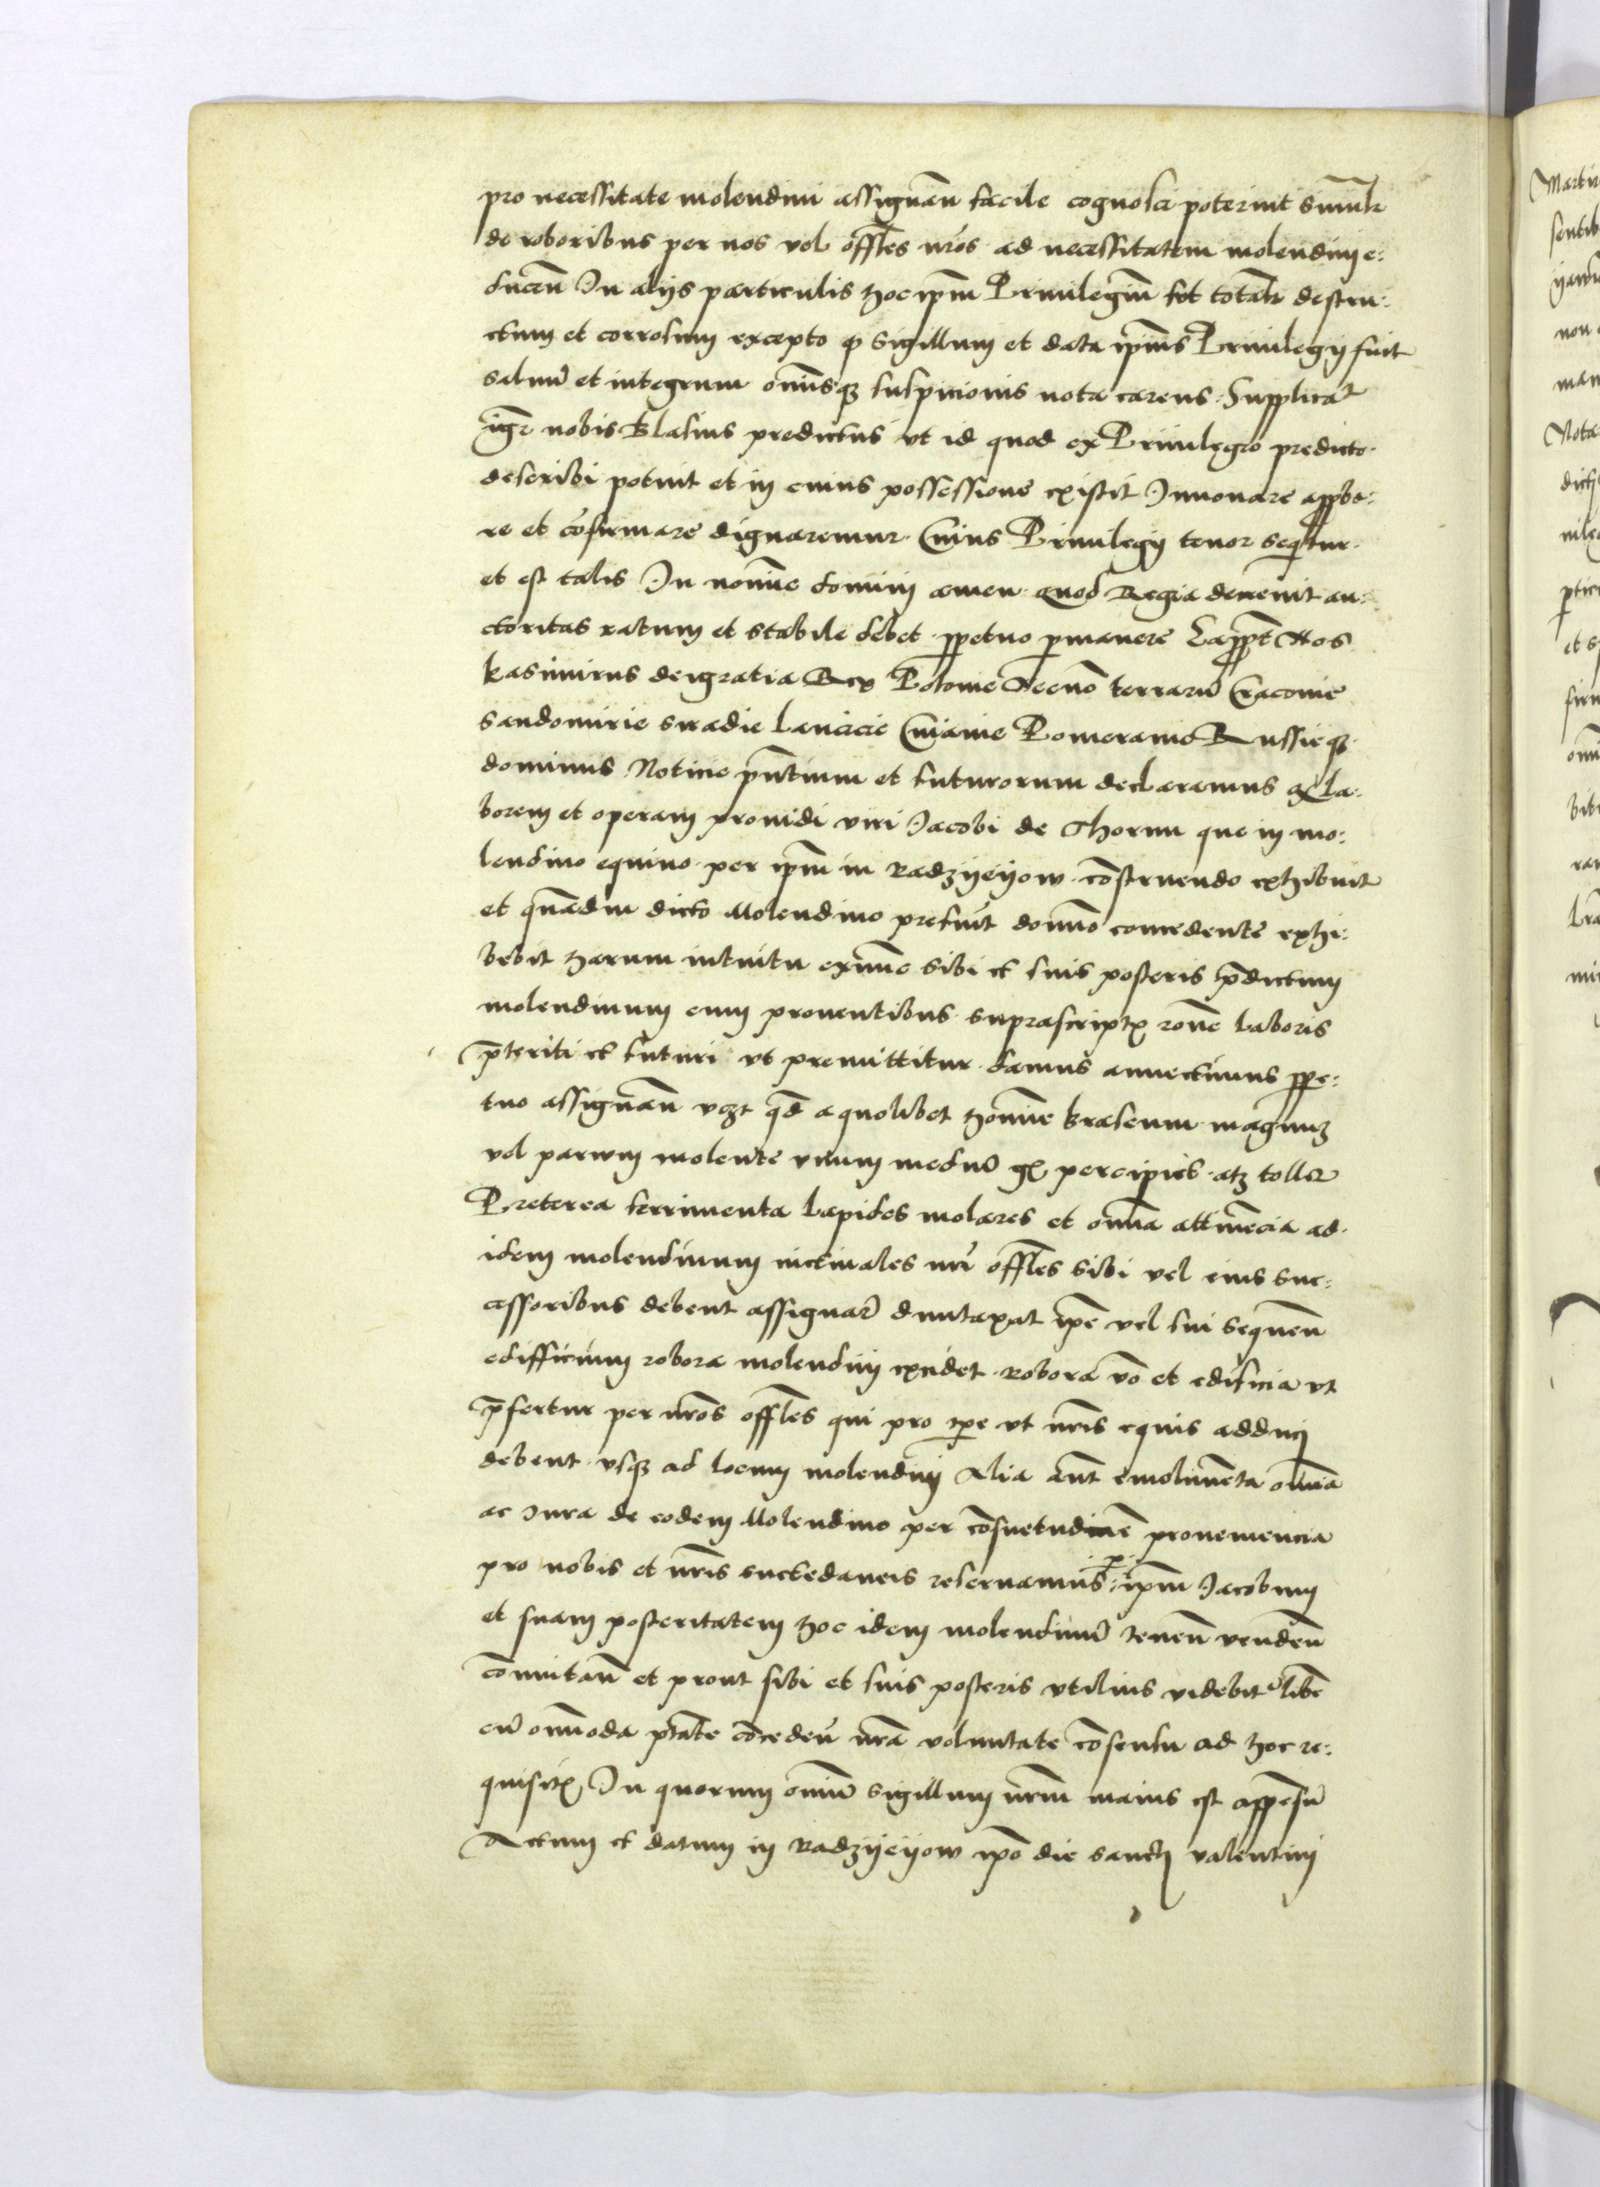 pro necessitate molendini assignan̄ facile cognosci poterint Similr
de roboribus per nos vel offles nr̄os ad necessitatem molendinj e:
ducen̄ In alijs particulis hoc ipm̄ Priuilegiū fft totalr destru:
ctum et corrosum excepto qp Sigillum et data ipīus Priuilegij fuit
saluū et integrum om̄isqz suspicionis nota carens. Supplicat
igr nobis Blasius predictus vt id quod ex Priuilegio predicto
describi potuit et in cuius possessione existit Innouare appba:
re et cōfirmare dignaremur. Cuius Priuilegij tenor sequitur
et est talis In nomine domini amen. Quod Regia decreuit au:
ctoritas ratum et stabile debet ppetuo pmanere Eapp̄t Nos
Kasimirus dei gratia Rex Polonie Necnō terrarū Cracouie
Sandomirie Siradie Lancicie Cuiauie Pomeranie Russieqz
dominus Noticie pn̄tium et futurorum declaramus qp la:
borem et operam prouidi viri Jacobi de Thorun que in mo:
lendino equino per ipm̄ in Radzijeijow cōstruendo exhibuit
et quādiu dicto Molendino prefuīt domīo concedente exhi:
bebit harum intuitu eximie sibi et suis posteris p̄dictum
molendinum cum prouentibus suprascriptis rōne laboris
p̄teriti et futuri vt premittitur damus annectimus ppe:
tuo assignan̄ vzt qd a quolibet homine braseum magnuz
vel paruum molente vnum mediū gr percipiet atz tollet
Preterea ferrimenta lapides molares et om̄ia attinēcia ad
idem molendinum victuales nr̄i offles sibi vel eius suc:
cessoribus debent assignare duntaxat ipe vel sui sequen̄
edifficium robora molendinj excidet. Robora vo et edificia vt
p̄fertur per nr̄os offles qui pro tpe vt nr̄is equis adducj
debent vsqz ad locum molendinj Alia aut̄ emolimēta om̄ia
ac iura de eodem Molendino per cōsuetudinē proueniencia
pro nobis et nr̄is succedaneis reseruamus: p ipm̄ Jacobum
et suam posteritatem hoc idem molendinū tenen̄ venden̄
cōmutan̄ et prout sibi et suis posteris vtilius videbit libe
cū om̄imoda ptāte cōceden̄ nr̄a voluntate cōsensu ad hoc re:
quisitis In quorum om̄iū sigillum nr̄m maius est appensū
Actum et datum in Radzijeijow ipo die sancti valentinj